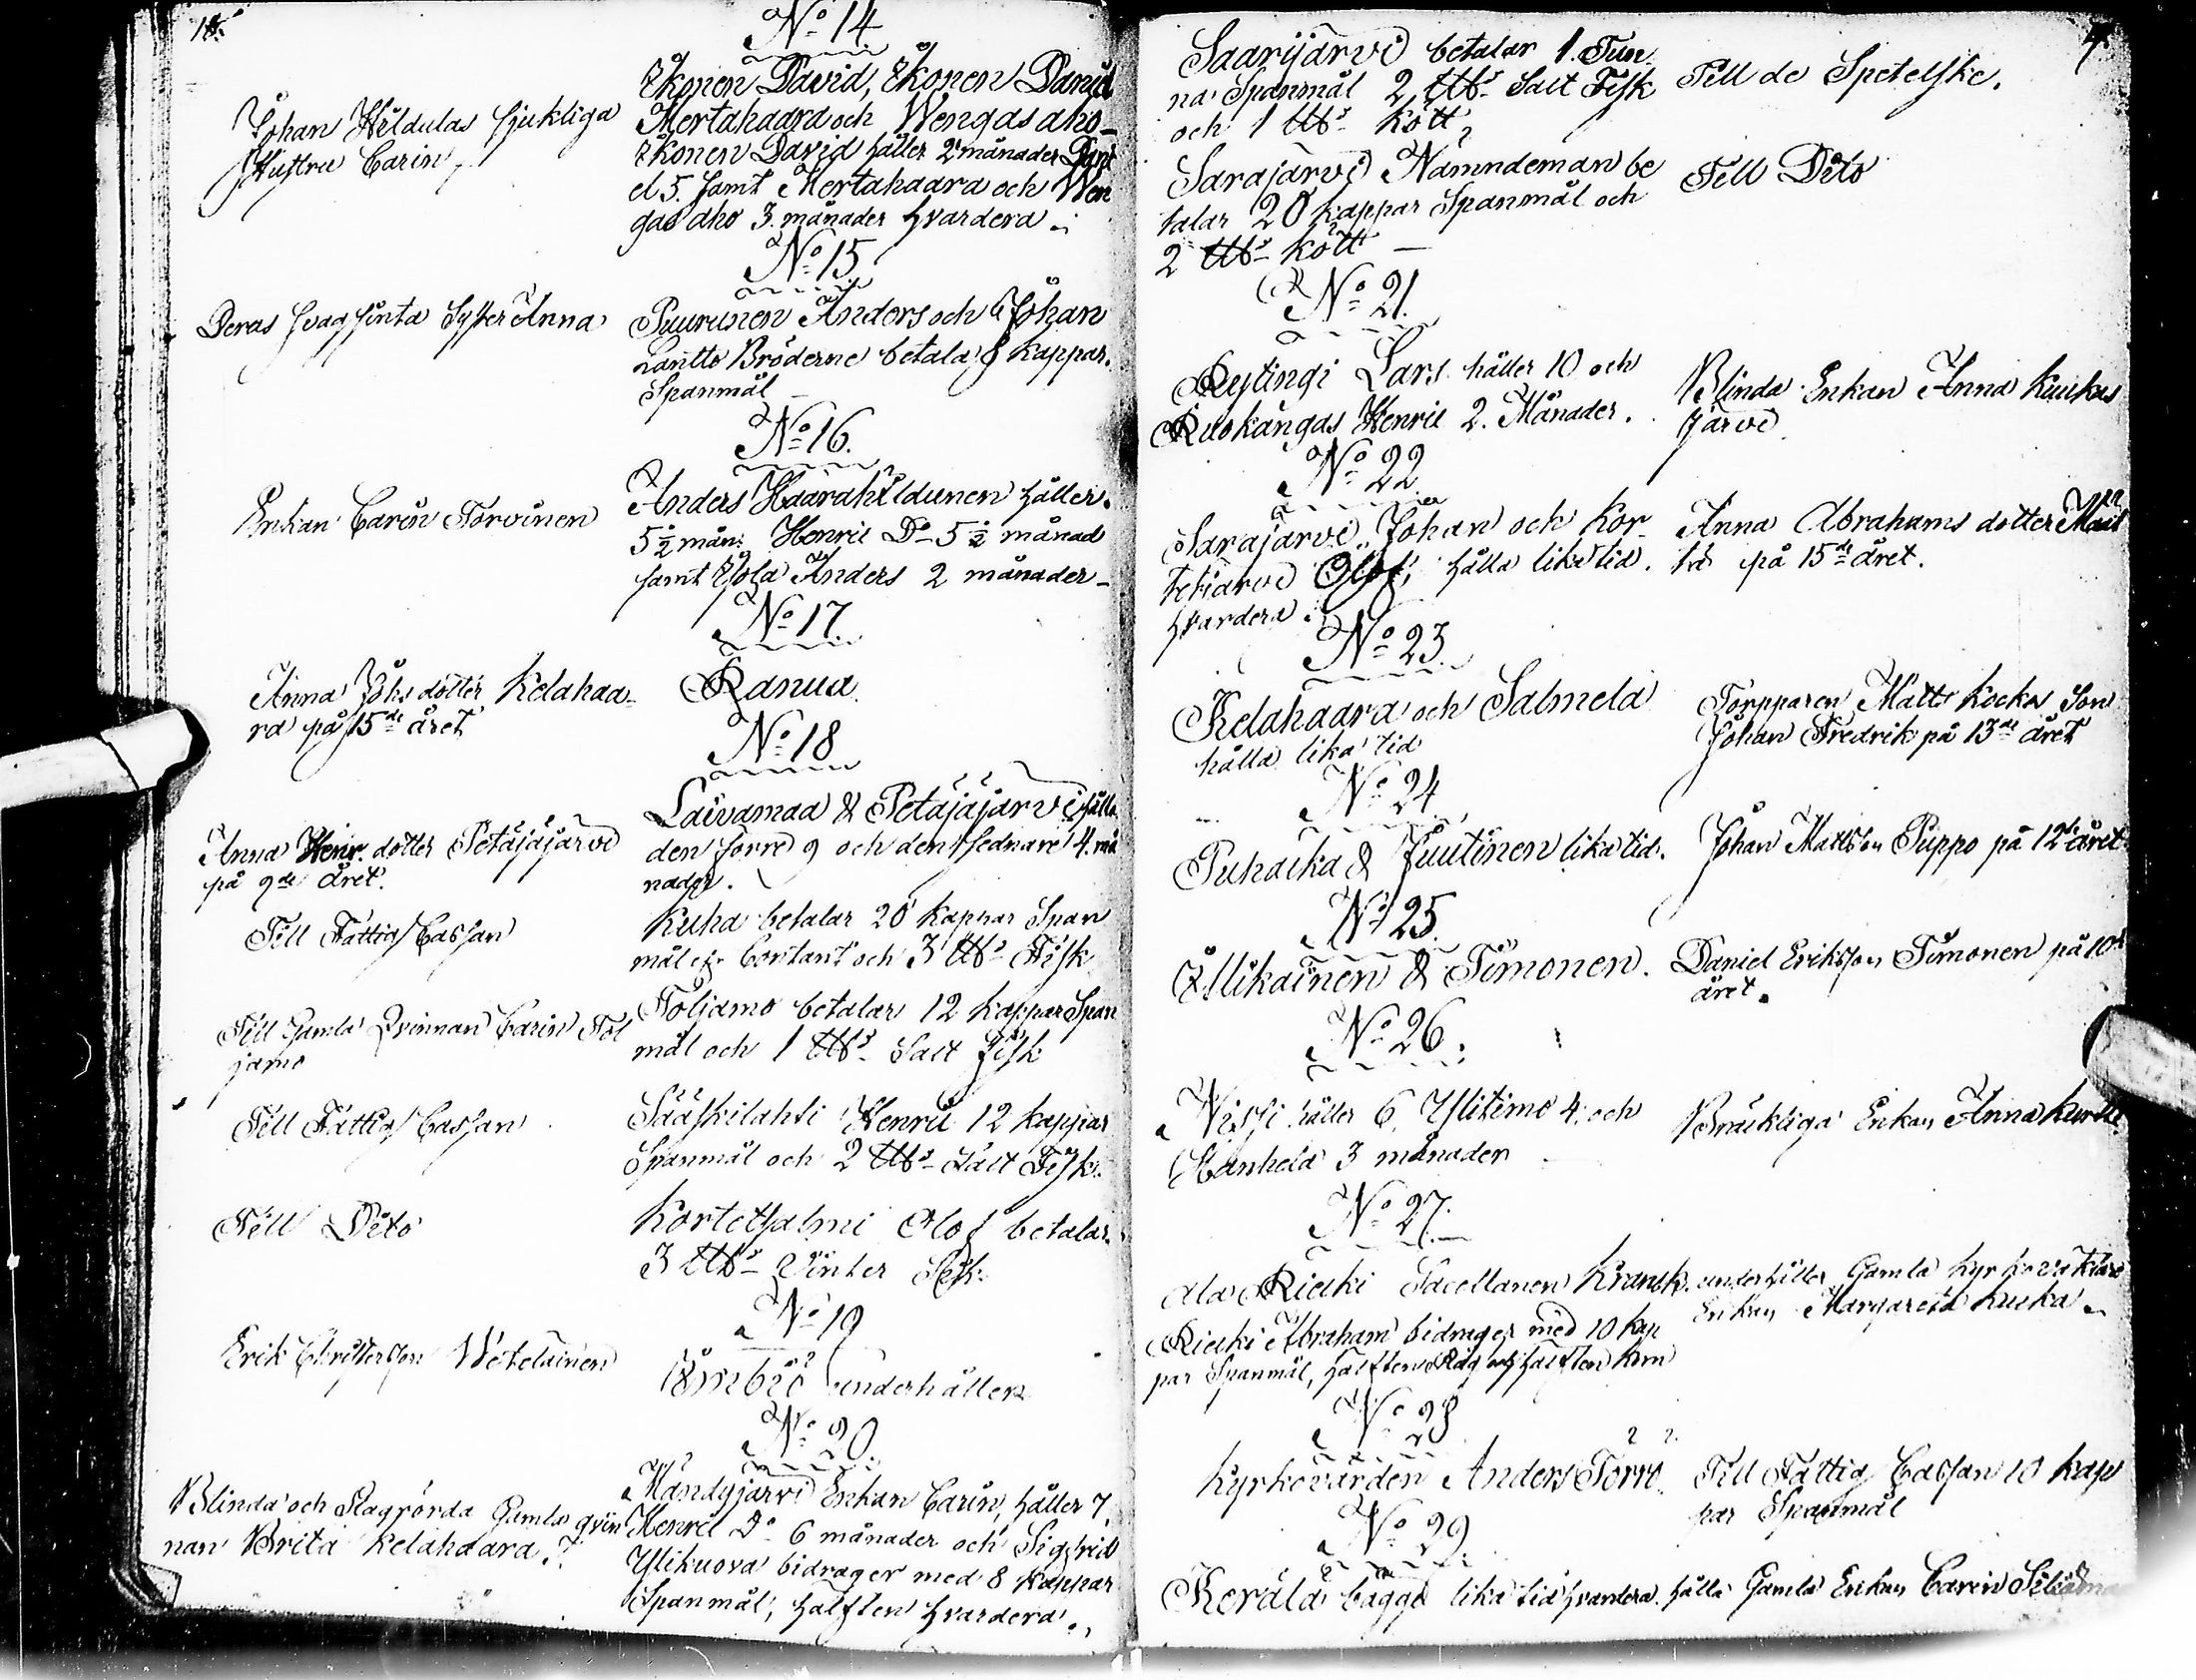 18.
No 14
Johan Hildulas sjukliga
Hustru Carin,
Ikonen David, Ikonen Daniel
Mertahaara och Wengasaho-
Ikonen David håller 2 månader Dani
el 5. samt Mertahaara och Wen
gasaho 3. månader hvardera
No 15
Deras svagsinta Syster Anna
Puurunen Anders och Johan
Lantto Bröderne betala 8 kappar
Spanmål
No 16.
Enkan Carin Torvinen
Anders Haarahildunen håller
5½ mån: Henric Do 5½ månad
samt Anders 2 månader
No 17
Anna Johs dotter Kelahaa-
ra på 15de året
Ranua
No 18
Anna Henr. dotter Petäjäjärvi
på 9de året.
Laivamaa & Petäjäjärvi hålla
den förre 9 och den sednare 4. må
nader.
Till Fattig Cassan
Kuha betalar 20 kappar Span
mål Contant och 3 Fisk
Till Gamla Qvinnan Carin Tol
jamo
Toljamo betalar 12 kappar Span
mål och 1 Salt fisk
Till Fattig Cassan
Sääskilahti Henric 12 kappar
Spanmål och 2 Salt Fisk
Till Dito
Kortetsalmi Olof betalar
3 Vinter Fisk
No 19
Erik Christersson Wetelainen
underhåller
No 20
Blinda och Slagrörda Gamla qvin
nan Brita Kelahaara.
Mändyjärvi Enkan Carin, håller 7,
Henric Do 6 månader och Sigfrid
Ylikuova bidrager med 8 kappar
Spanmål, hälften hvardera
Saarijärvi betalar 1. Tun
na Spanmål 2 Salt Fisk
och 1 kött
Till de Spetelske.
Sarajärvi Nämndeman be
talar 20 kappar Spanmål och
2 kött
Till Dito
No 21.
Rytingi Lars håller 10 och
Ruokangas Henric 2. Månader.
Blinda Enkan Anna Kuukas
järvi
No 22
Sarajärvi Johan och Kor
tetjärvi Olof, hålla lika tid
hvardera
Anna Abrahams dotter
på 15de året.
No 23.
Kelahaara och Salmela
hålla lika tid
Torpparen Matts Kockos Son
Johan Fredrik på 13de året
No 24
Puhakka & Juutinen lika tid.
Johan Mattsson Puppo på 12te året
No 25.
Illikainen & Timonen.
Daniel Eriksson Timonen på 10de
året.
No 26.
håller 6, Ylitimo 4. och
3 månader
Bräckliga Enkan Anna
No 27.
Ala Riekki Sacellanen Kranck. underhåller Gamla kyrkoväktare
Enkan Margareta Kuuka
Riekki Abraham bidrager med 10 kap
par Spanmål, hälften Råg och hälften korn
No 28
Kyrkovärden Anders Törrö.
Till Fattig Cassan 10 kap
par Spanmål
No 29.
Kerälä bägge lika tid hvardera. hålla Gamla Enkan Carin